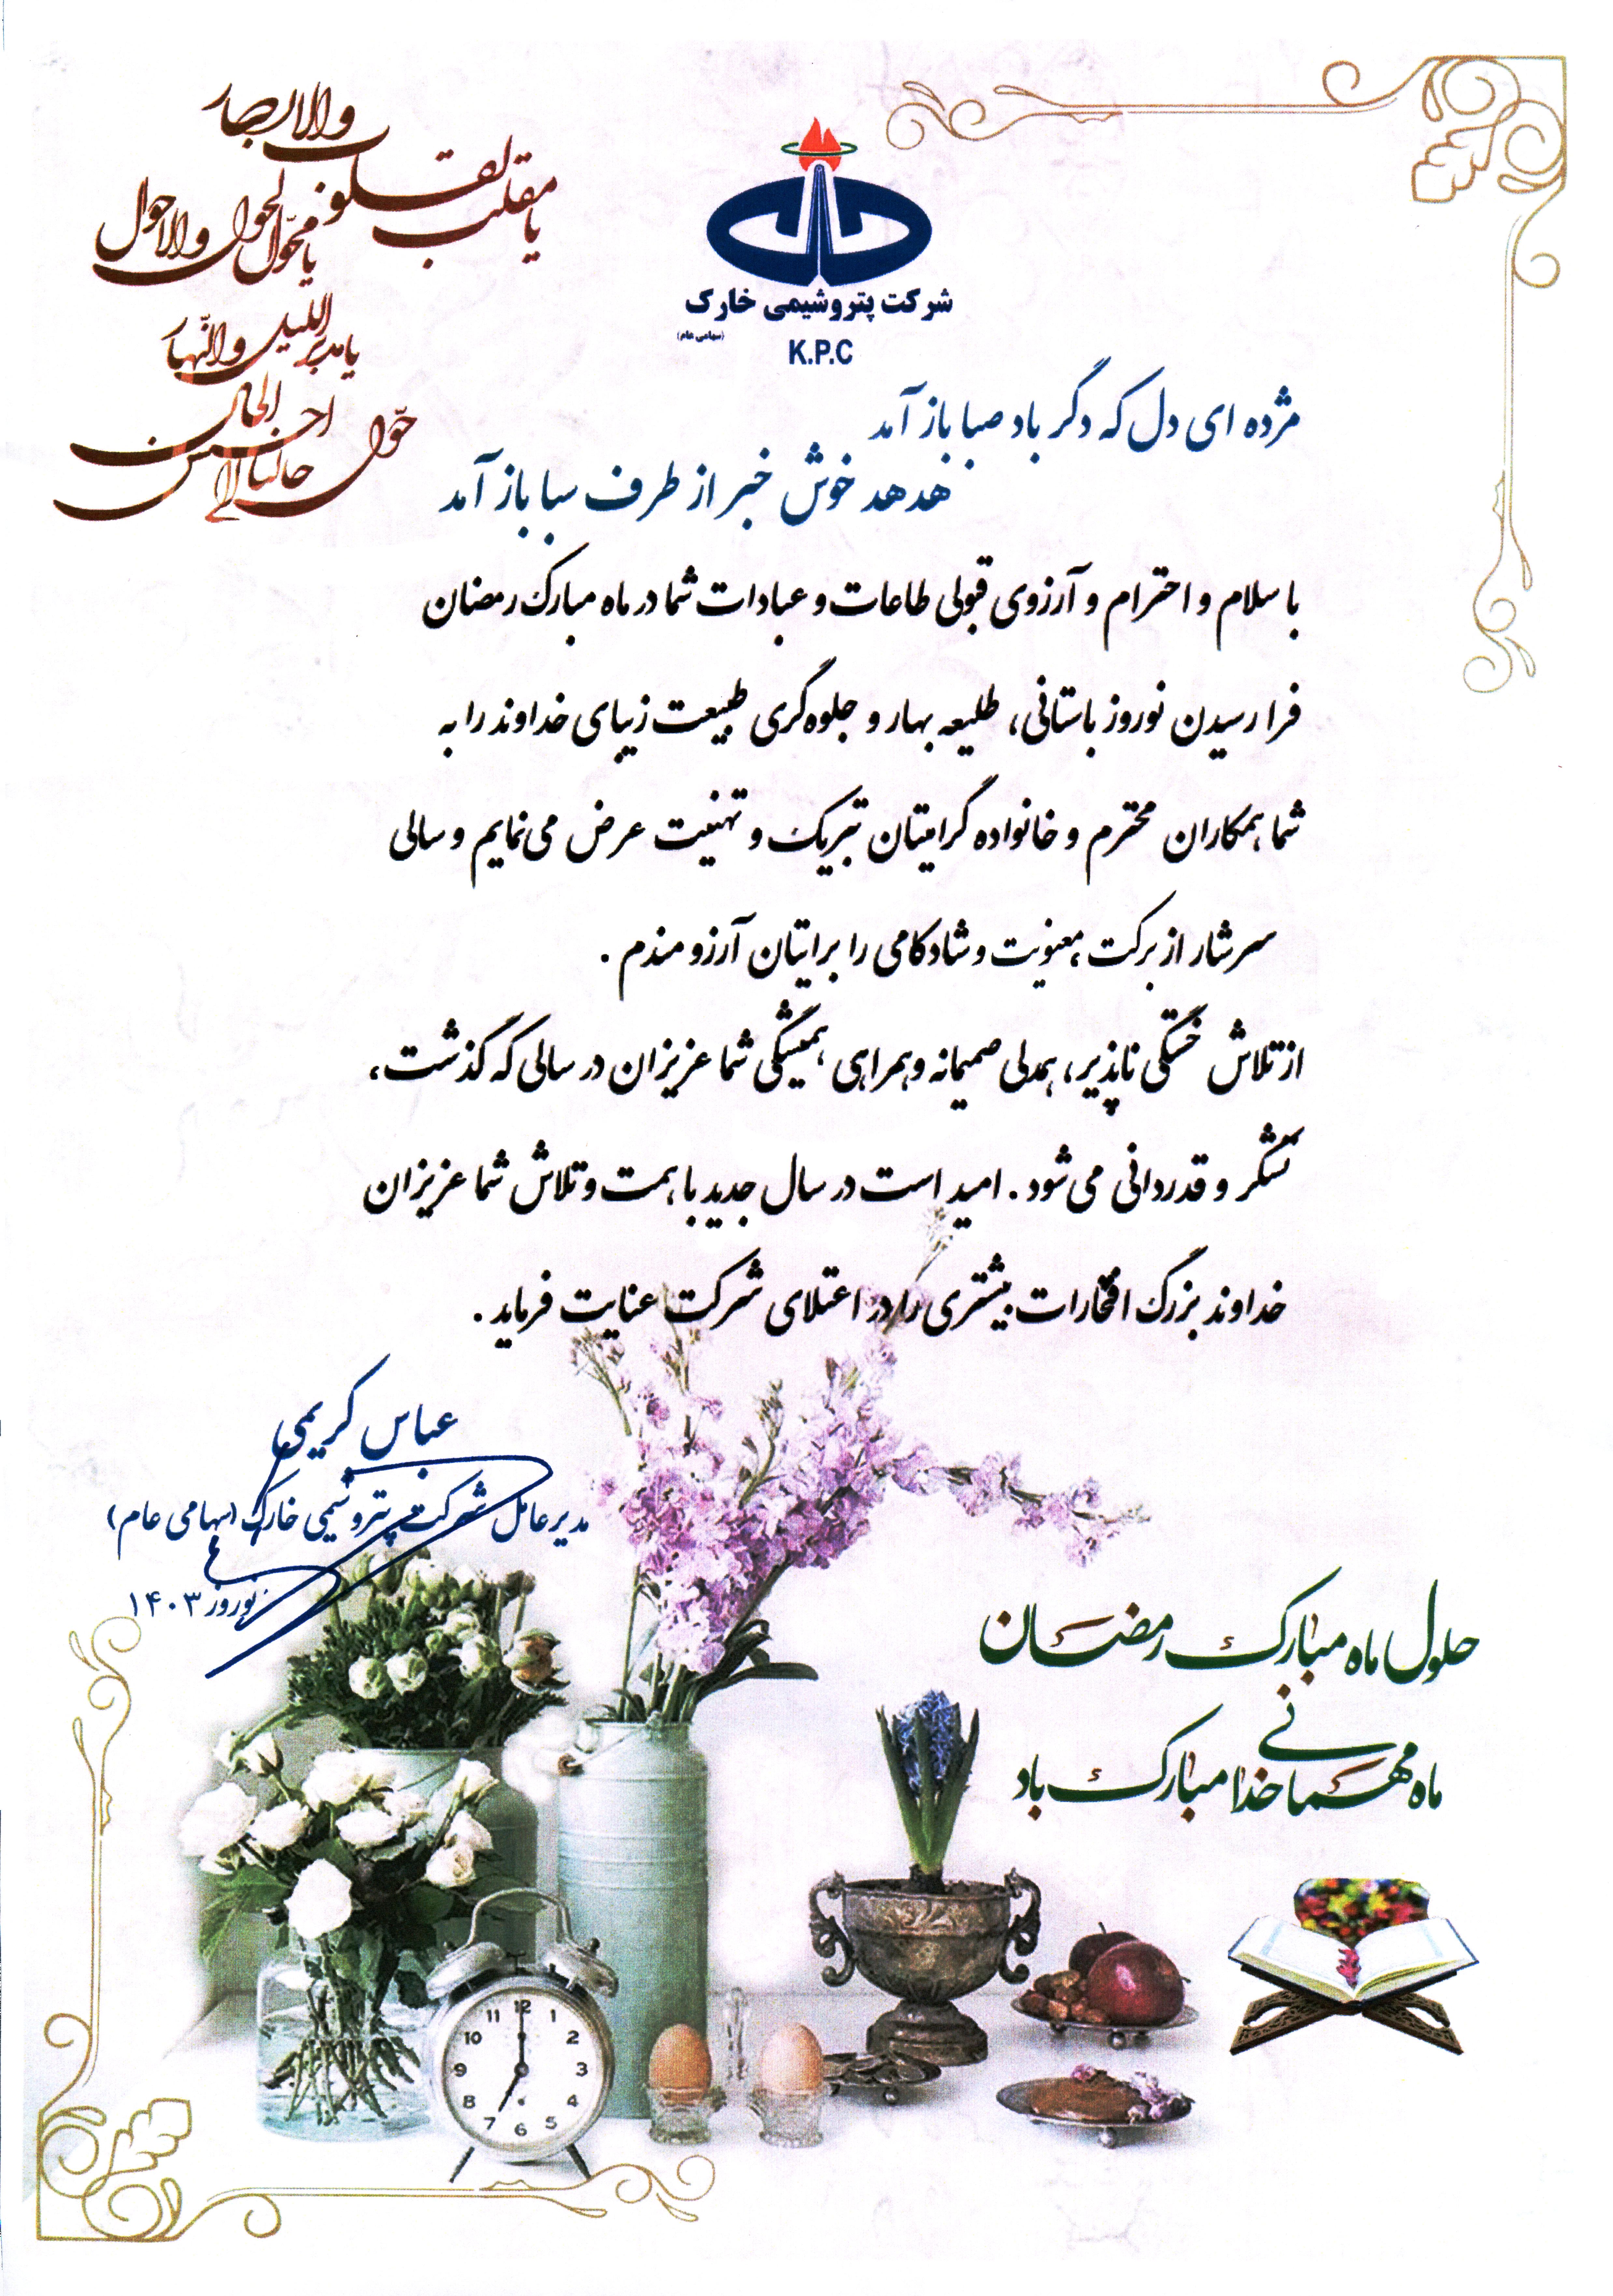 یا مقلب القلوب والابصار
یا محوّل الحول والاحوال
یا مدبّر اللیل والنّهار
حوّل حالنا الی احسن الحال
شرکت پتروشیمی خارک
(سهامی عام)
K.P.C
مژده ای دل که دگر باد صبا باز آمد
هدهد خوش خبر از طرف سبا باز آمد
با سلام و احترام و آرزوی قبولی طاعات و عبادات شما در ماه مبارک رمضان
فرا رسیدن نوروز باستانی، طلیعه بهار و جلوه گری طبیعت زیبای خداوند را به
شما همکاران محترم و خانواده گرامیتان تبریک و تهنیت عرض می نمایم و سالی
سرشار از برکت، معنویت و شادکامی را برایتان آرزو مندم .
از تلاش خستگی ناپذیر، همدلی صمیمانه و همراهی همیشگی شما عزیزان در سالی که گذشت،
تشکر و قدردانی می شود . امید است در سال جدید با همت و تلاش شما عزیزان
خداوند بزرگ افتخارات بیشتری را در اعتلای شرکت عنایت فرماید .
عباس کریمی
مدیر عامل شرکت پتروشیمی خارک (سهامی عام)
نوروز ۱۴۰۳
حلول ماه مبارک رمضان
ماه مهمانی خدا مبارک باد
12
1
2
3
4
5
6
7
8
9
10
11